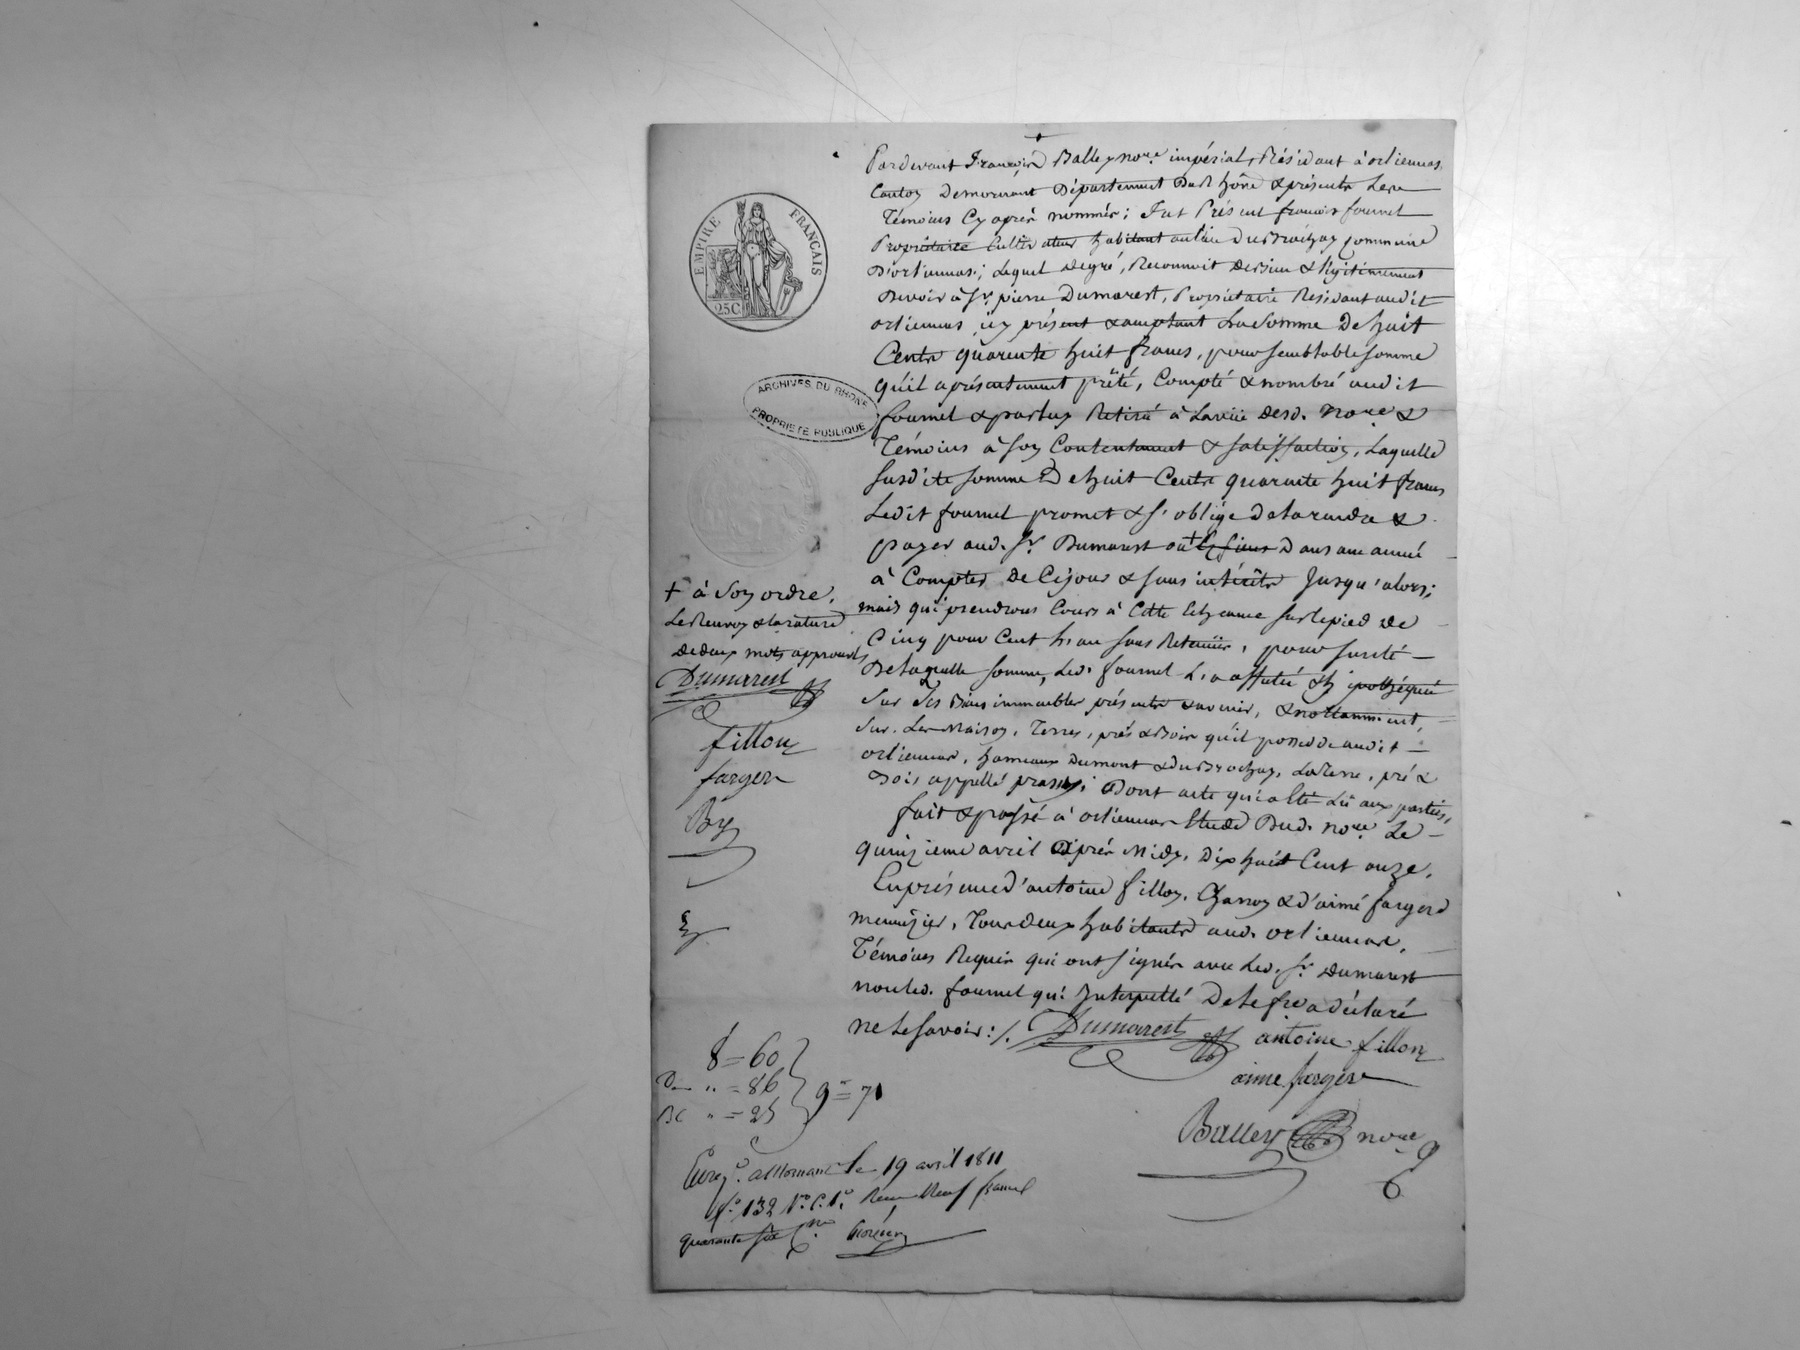 Pardevant François Balley no.re impérial, Résidant à orlienas,
Canton Demornant Département Du Rhône & présents Les
Témoins Cy après nommés; fut Présent françois fournel
Propriétaire Cultivateur habitant au lieu Du Brochay commune
D'orlienas; Lequel de gré, Reconnoit Devoir & légitimement
Devoir à Sr. pierre Dumarest, Propriétaire Résidant audit
orlienas icy présent & acceptant La Somme De huit
Cents quarente huit francs, pour semblable somme
qu'il a présentement prêté, Compté & nombré audit
fournel & par luy Retiré à La vüe desd. Nore &
Témoins à son Contentement & satisfaction, Laquelle
susdite somme De huit Cents quarante huit francs
Ledit fournel promet & s'oblige de la rendre &
payer aud. Sr Dumarest ou + Dans une année
à Compter De Cejour & sans intérêts Jusqu'alors;
mais qui prendrons Cours à Cette Echeance sur le pied de
Cinq pour Cent L'an sans Retenüe, pour sureté
De laquelle somme, Led. fournel L'a affecté & hypothéqué
Sur Ses Biens immeubles présents & avenir, & nottamment,
Sur Les Maison, Terres, prés & Bois qu'il possede audit
orlienas, hameaux Dumont & Du Brochay, La Terre, pré &
Bois appellé ; Dont acte qui a Eté Lû aux parties,
fait & passé à orlienas Etude Dud. Nore Le
quinzieme avril après Midy, Dix huit Cent onze,
En présence d'antoine fillon, & d'aimé fargere
menuzier, Tous deux habitants aud. orlienas,
Témoins Requis qui ont signés avec Led. Sr. Dumarest
non led. fournel qui Interpellé De Le fre a déclaré
ne Le savoir :/. Dumarest antoine fillon
aimé fargere
Balley nore
EMPIRE FRANÇAIS
25C
ARCHIVES DU RHÔNE
PROPRIETE PUBLIQUE
+ à Son ordre.
Le Renvoy & la rature
de deux mots approuvés
Dumarest
fillon
fargere
By
8 = 60
D „ = 86
9 = 71
„ = 25
Enreg. à Mornant le 19 avril 1811
fo. 132 Vo. C. 1o. Reçu Neuf francs
quarante